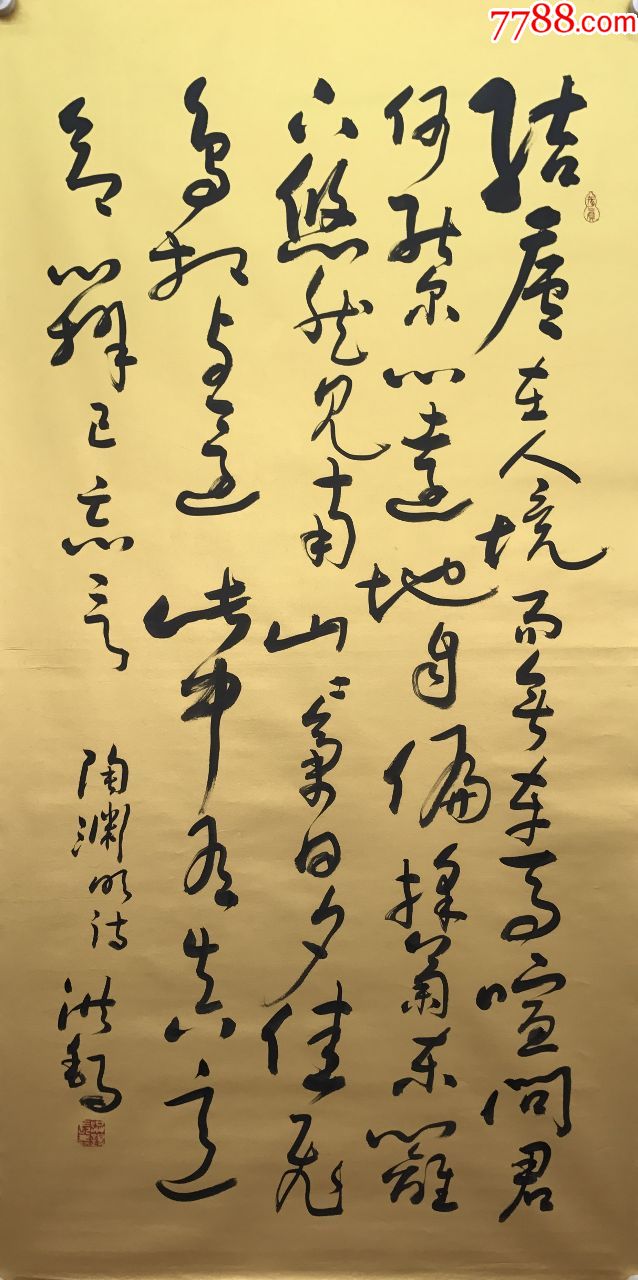 7788.com
结廬在人境而無車馬喧問君
何能尔心遠地自偏採菊東籬
下悠然見南山〻氣日夕佳飛
鳥相与還此中有真意
欲辨已忘言
陶渊明诗 洪